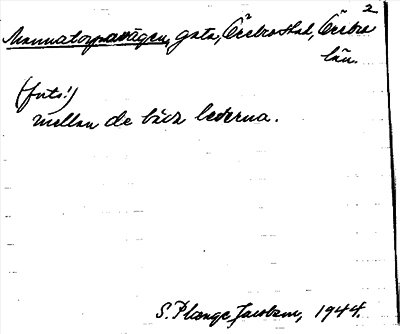 2
Mannatorpsvägen, gata, Örebro stad, Örebro
län.
(foto!)
mellan de båda lederna.
S. Plange Jacobson, 1944.